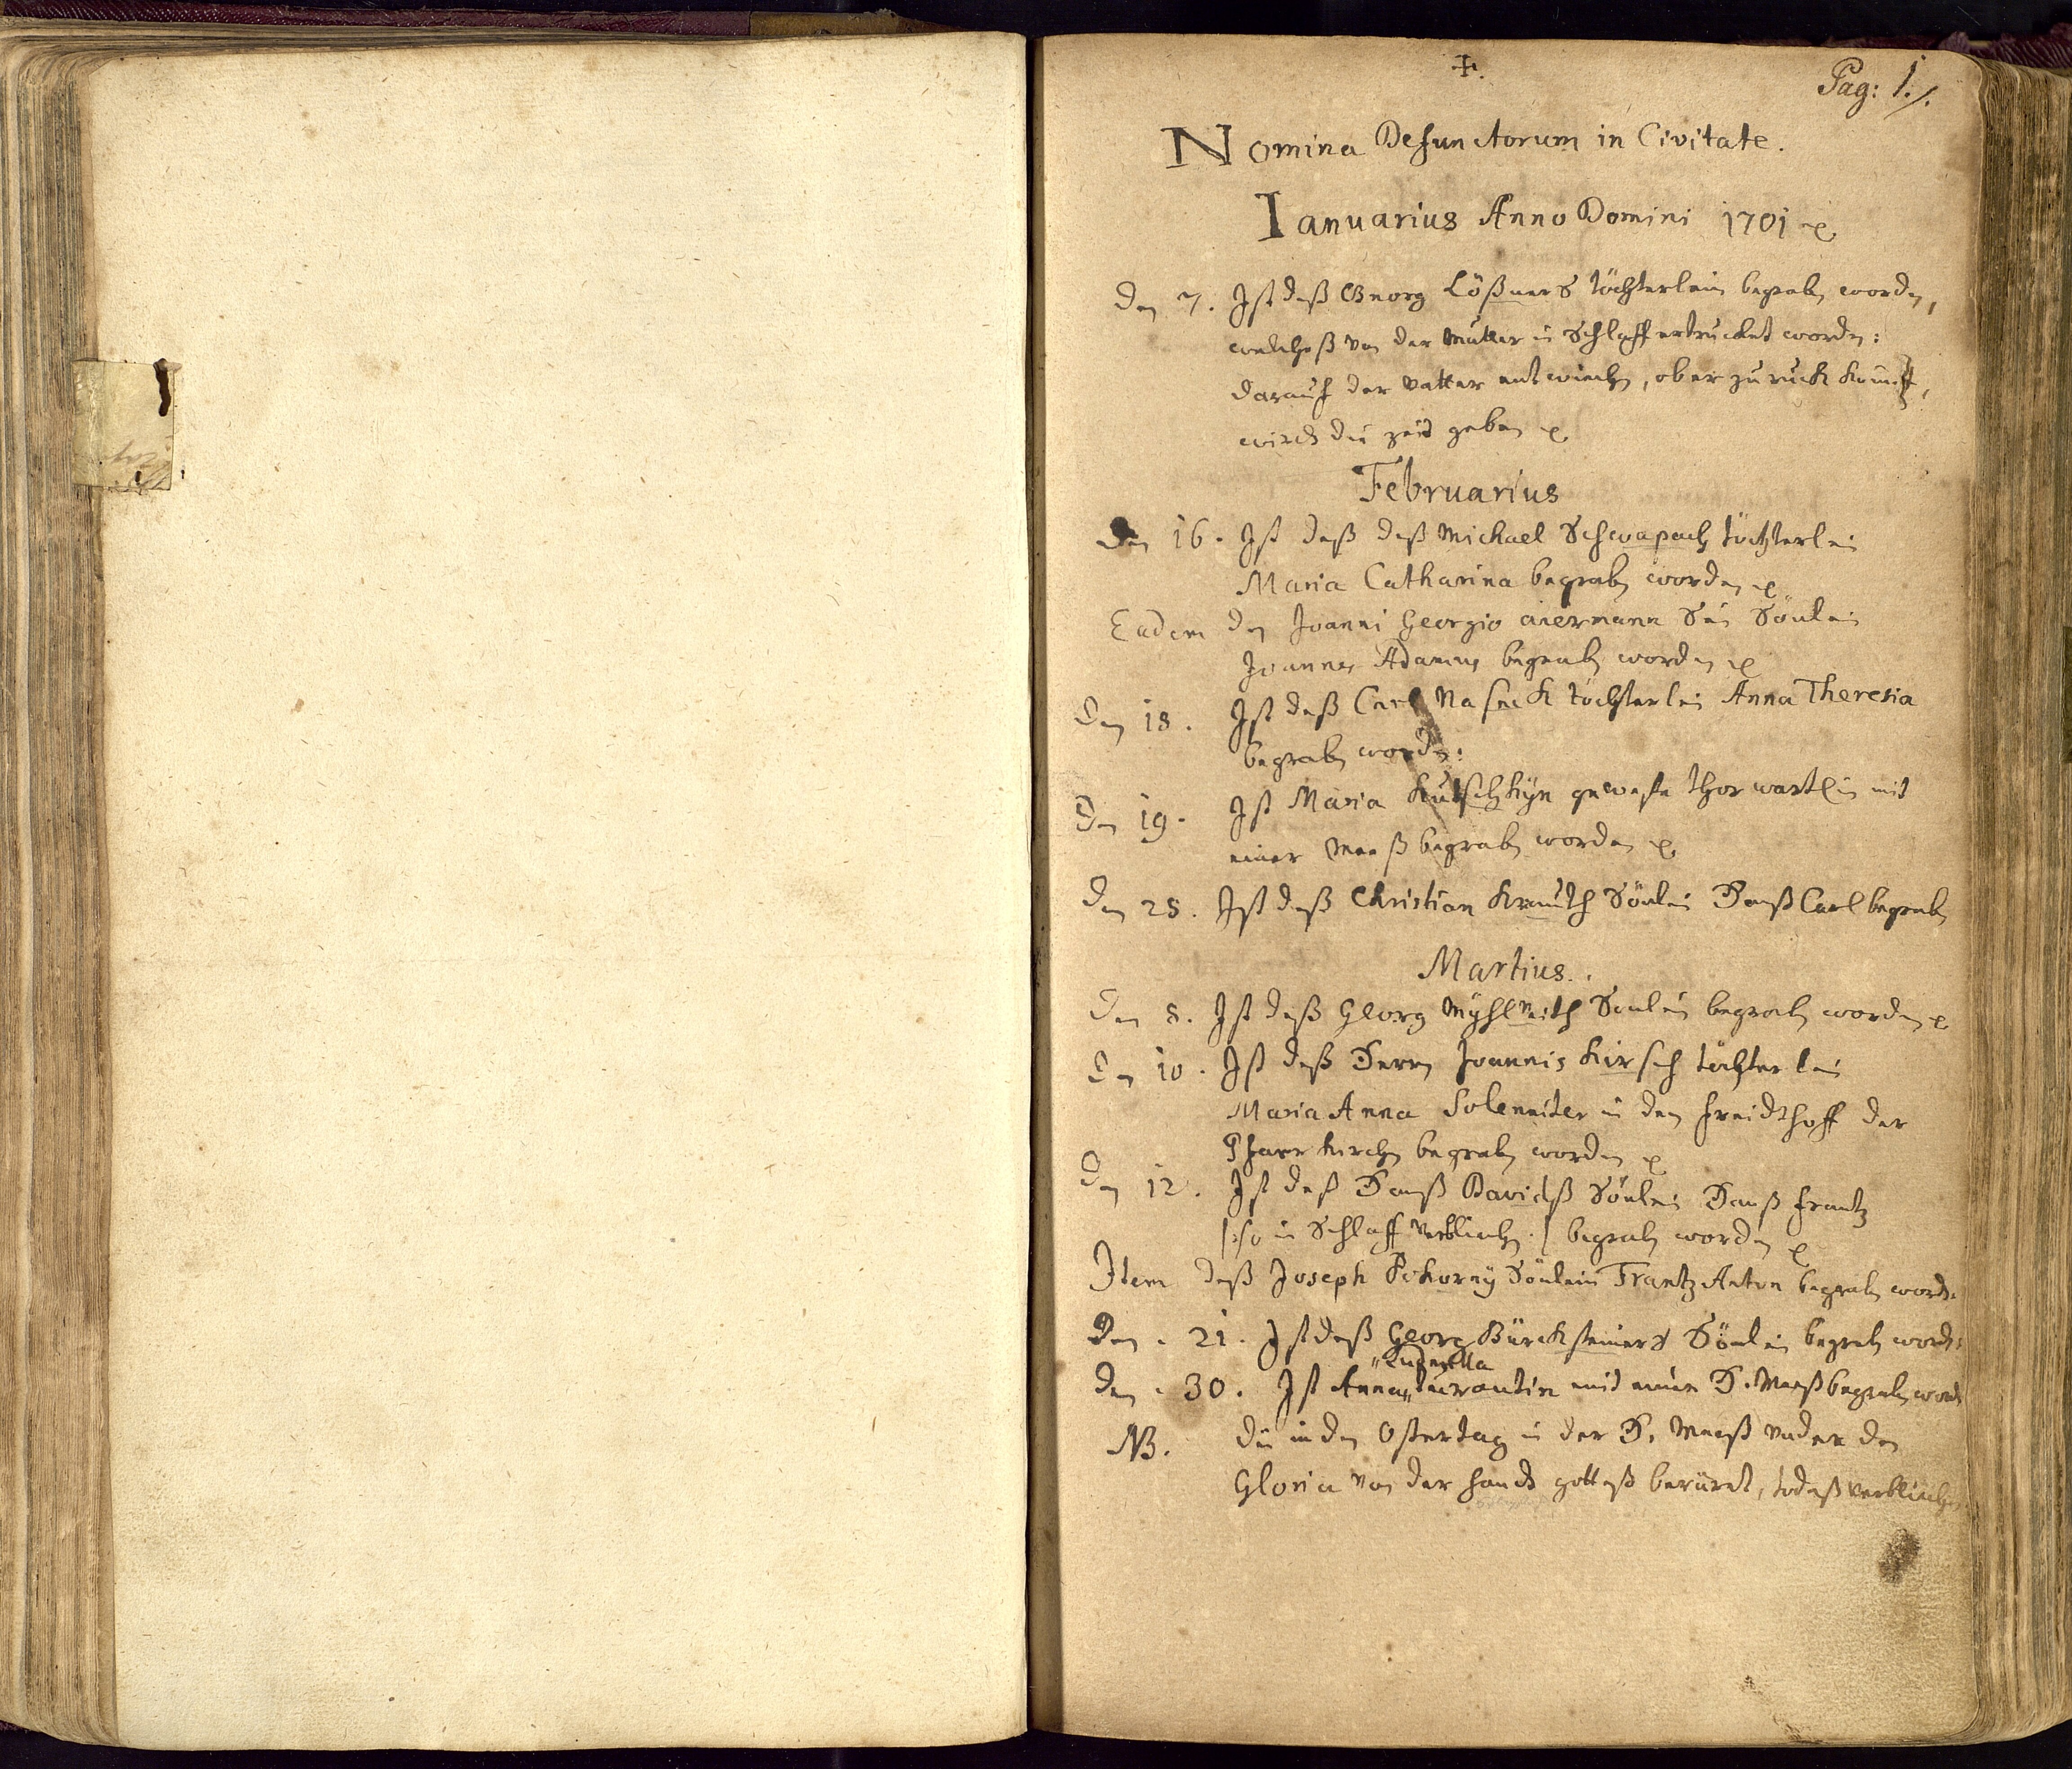 ✝.
Pag: 1./.
Nomina Defunctorum in Civitate.
Ianuarius Anno Domini 1701
Den 7. Ist deß Georg Lößners töchterlein begraben worden,
welcheß von der Mutter in Schlaff ertrucket worden:
darauf der Vatter entwichen, ob er zuruck kombt,
wird die zeit geben
Februarius
Den 16. Ist deß deß Michael Schwapach töchterlein
Maria Catharina begraben worden
Eadem den Joanni Georgio Sein Sönlein
Joannes Adamus begraben worden
Den 18. Ist deß Carl töchterlein Anna Theresia
begraben worden:
Den 19. Ist Maria geweste thorwartlin mit
einer Meeß begraben worden
Den 28. Ist deß Christian Krauth Sönlein Hanß Carl begraben
Martius.
Den 8. Ist deß Georg Sönlein begraben worden
Den 10. Ist deß Herrn Joannis Kirsch töchterlein
Maria Anna Soleniter in den freidthoff der
Pfarr kirchen begraben worden
Den 12. Ist deß Hanß Davidß Sönlein Hanß Frantz
/: so in Schlaff verblichen :/ begraben worden
Item deß Joseph Pokorny Sönlein Frantz Anton begraben worden
Den . 21. Ist deß Georg Bürcksteiners Sönlein begraben worden:
Den . 30. Ist Anna mit einer H. Meeß begraben worden
NB. die in den Ostertag in der H. Meeß under den
Gloria von der handt gotteß berürrt, todeß verblichen